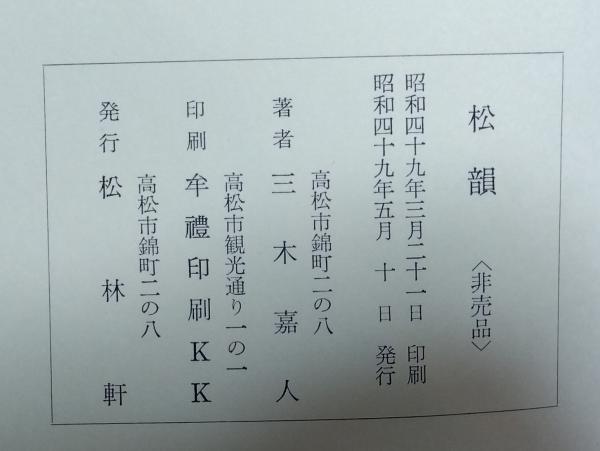 松韻 〈非売品〉
昭和四十九年三月二十一日 印刷
昭和四十九年五月 十 日 発行
高松市錦町二の八
著者 三木嘉人
高松市観光通り一の一
印刷 牟禮印刷KK
高松市錦町二の八
発行 松林軒